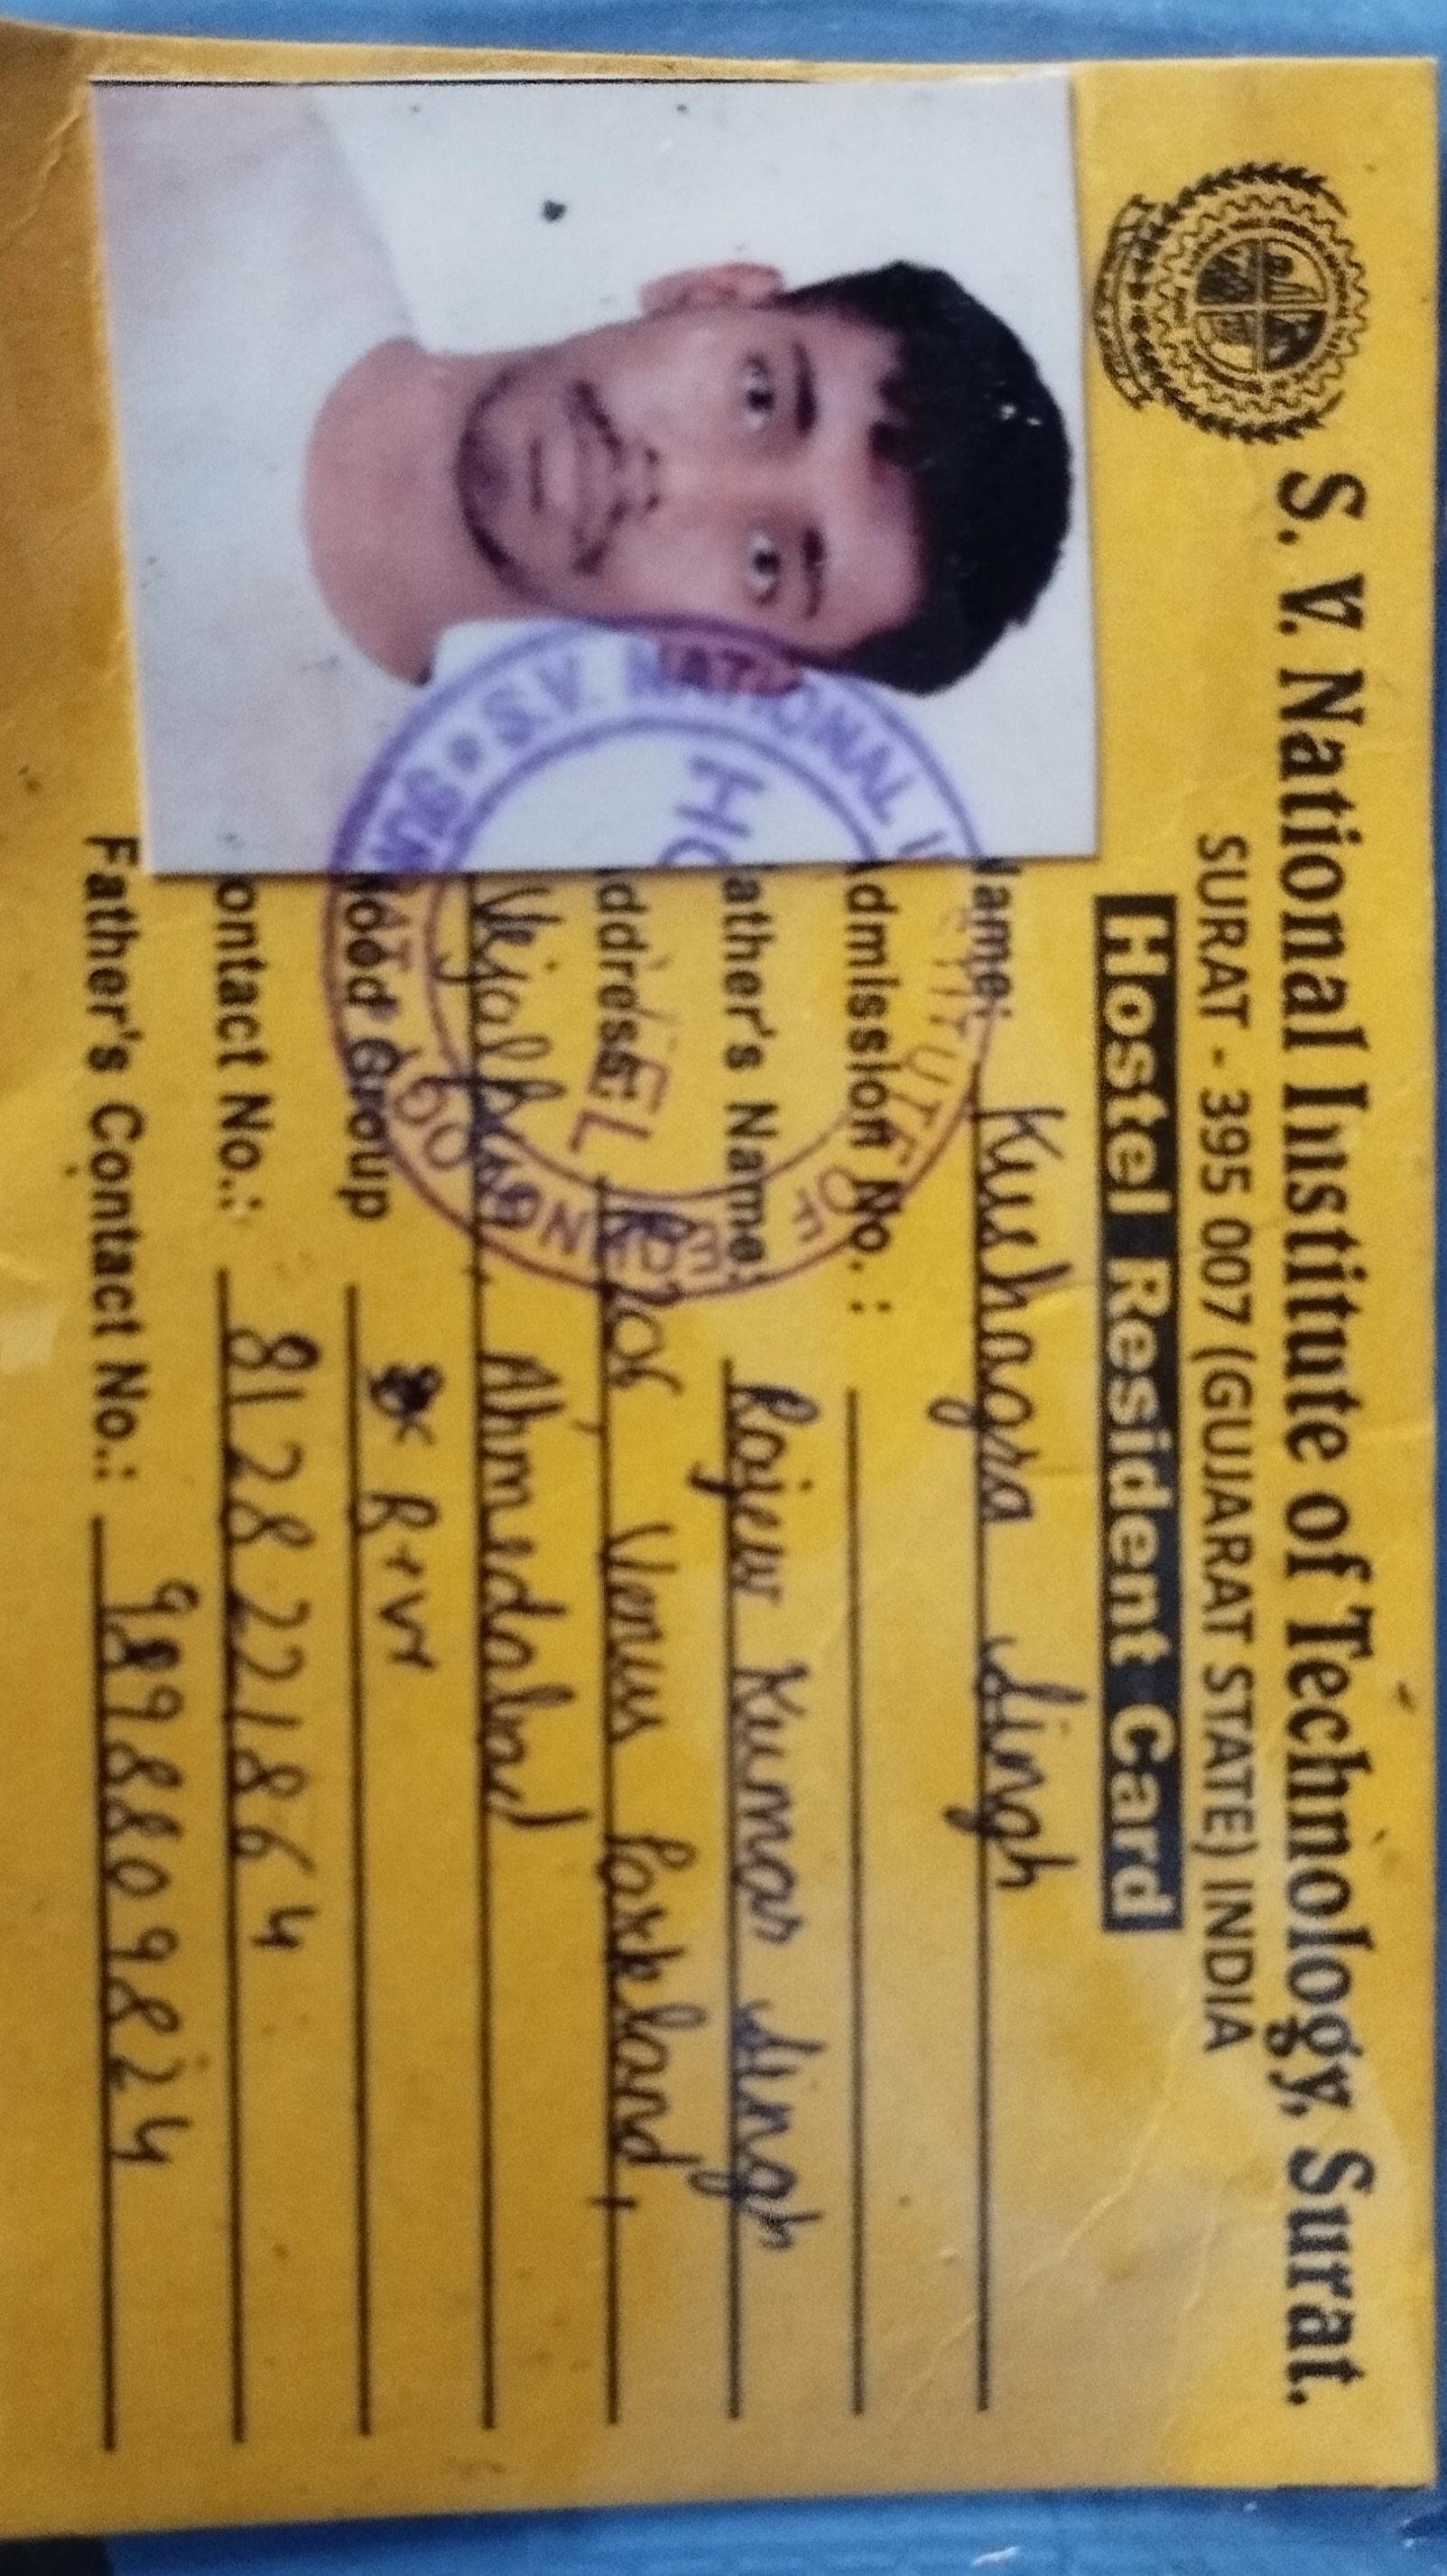 S. V. National Institute of Technology, Surat.
SURAT - 395 007 (GUJARAT STATE) INDIA
Hostel Resident Card
Name: Kushagra Singh
Admission No. :
ather's Name: Rajeev Kumar Singh
ddress Venus Parkeland,
Vejalpur, Ahmedabad
lood Group B+ve
ontact No.: 8128221864
Father's Contact No.: 9898809824
S.V. NATIONAL INSTITUTE OF
HOSTEL